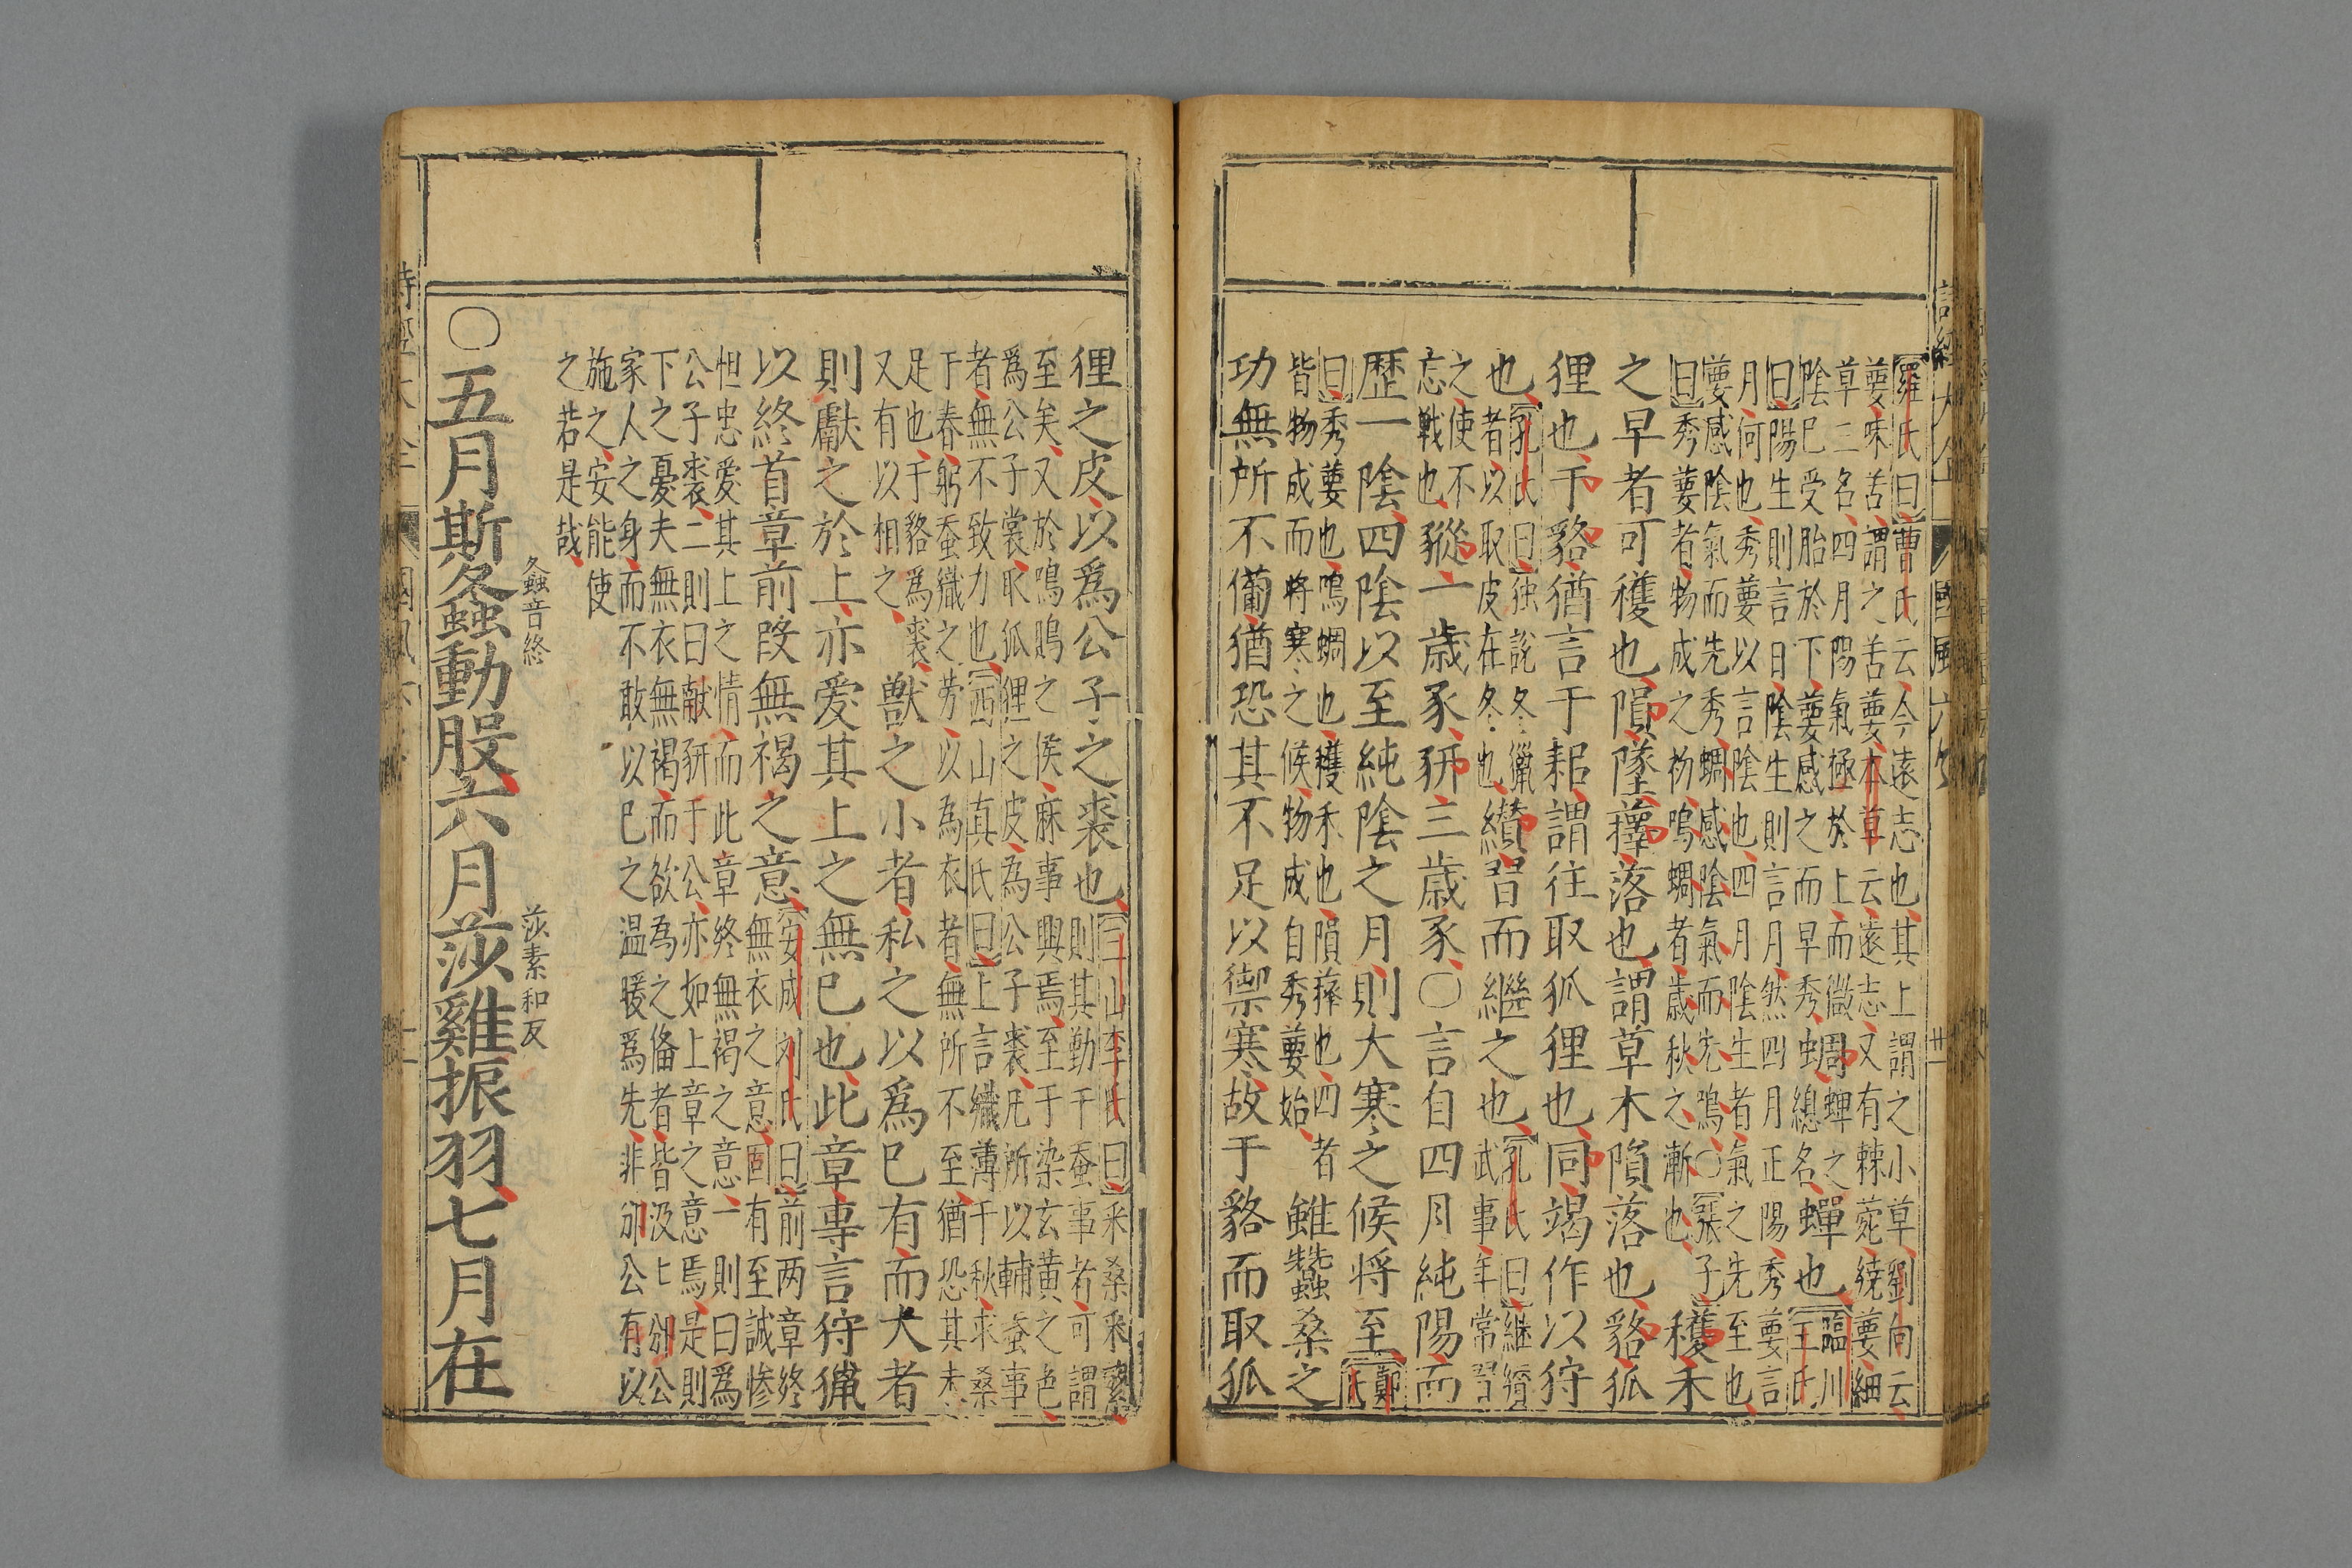 羅氏曰曹氏云今遠志也其上謂之小草劉向云
葽味苦謂之苦葽本草云遠志又有棘菀繞葽細
草三名四月陽氣極於上而微
陰巳受胎於下葽感之而早秀
蜩蟬之總名蟬也
臨川王氏
曰陽生則言日陰生則言月然四月正陽秀葽言
月何也秀葽以言陰也四月陰生者氣之先至也
葽感陰氣而先秀蜩感陰氣而先鳴○張子
曰秀葽者物成之初鳴蜩者歲秋之漸也
穫禾
之早者可穫也隕墜蘀落也謂草木隕落也貉狐
狸也于貉猶言于耜謂往取狐狸也同竭作以狩
也
孔氏曰獨說冬獵
者以取皮在冬也
纘習而繼之也
孔氏曰繼續
武事年常習
之使不
忘戰也
豵一歲豕豜三歲豕○言自四月純陽而
歷一陰四陰以至純陰之月則大寒之候將至
鄭氏
曰秀葽也鳴蜩也穫禾也隕蘀也四者
皆物成而將寒之候物成自秀葽始
雖蠶桑之
功無所不備猶恐其不足以禦寒故于貉而取狐
狸之皮以爲公子之裘也
三山李氏曰采桑采蘩
則其勤于蚕事者可謂
至矣又於鳴鵙之候麻事興焉至于染玄黃之色
爲公子裳取狐狸之皮為公子裘凡所以輔蚕事
者無不致力也西山真氏曰上言纖薄于秋求桑
于春躬蚕織之勞以為衣者無所不至猶恐其未
足也于貉爲裘
又有以相之
獸之小者私之以爲巳有而大者
則獻之於上亦愛其上之無巳也此章專言狩獵
以終首章前段無褐之意
安成刘氏曰前两章終
無衣之意固有至誠惨
怛忠愛其上之情而此章終無褐之意一則曰爲
公子裘二則曰献豜于公亦如上章之意焉是則
下之憂夫無衣無褐而欲為之俻者皆汲上为公
家人之身而不敢以巳之温暖爲先非邠公有以
施之安能使
之若是哉
○五月斯螽動股六月莎雞振羽七月在
螽音終
莎素和反